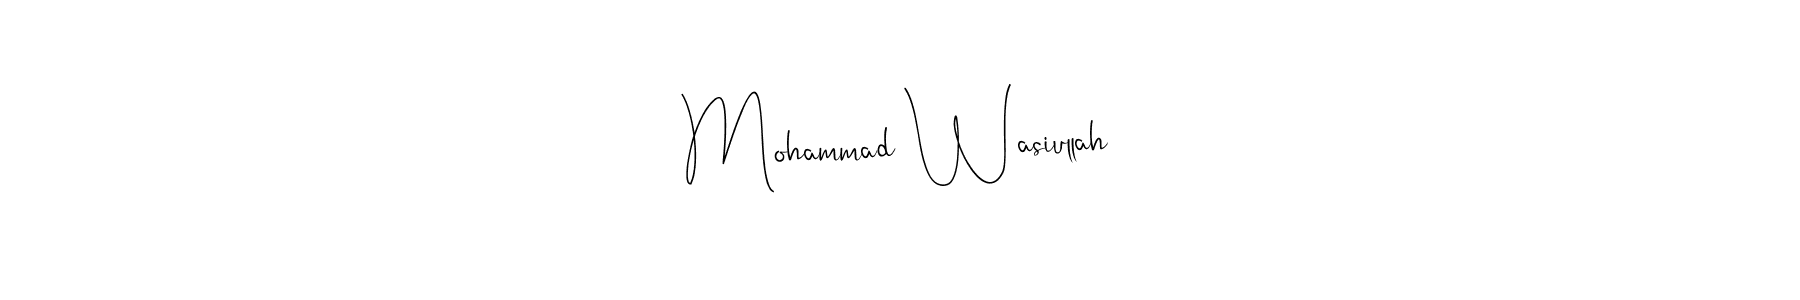 Mohammad Wasiullah